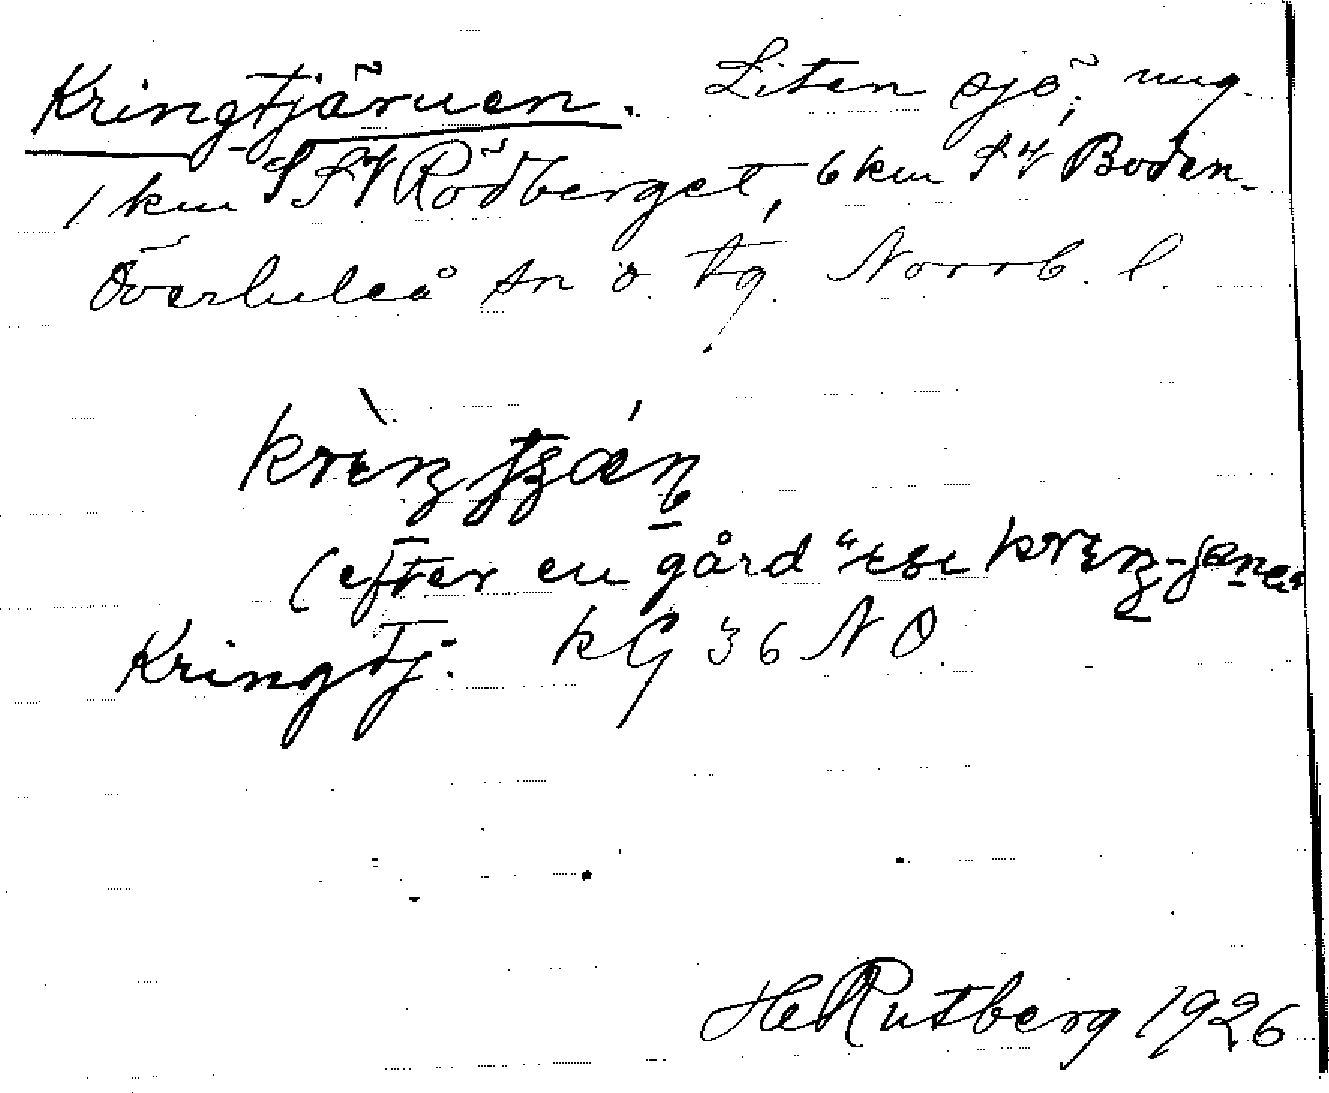 Kringtjärnen. Liten sjö, ung.
1 km SSV Rödberget, 6 km SV Boden.
Överluleå sn ö. tg. Norrb. l.
(efter en gård
Kringtj. kG 36 NO.
HRutberg 1926